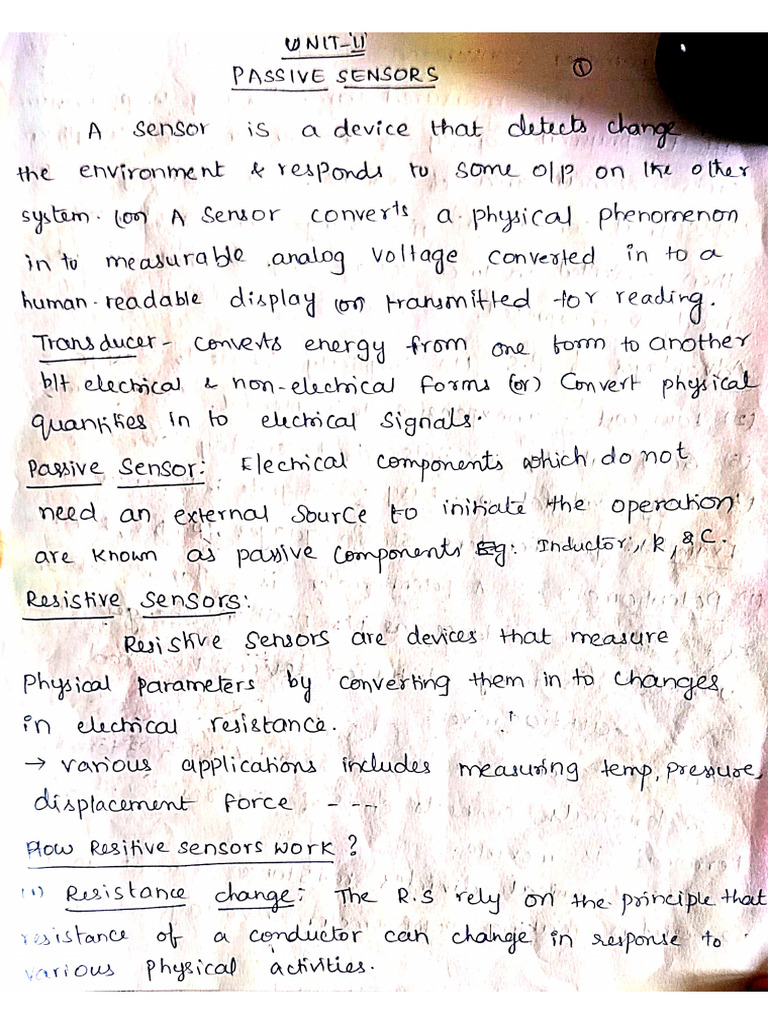 UNIT-II
PASSIVE SENSORS ①
A sensor is a device that detects change
the environment & responds to some o/p on the other
system. (or) A sensor converts a physical phenomenon
in to measurable analog voltage converted in to a
human-readable display (or) transmitted for reading.
Transducer - converts energy from one form to another
b/t electrical & non-electrical forms (or) Convert physical
quantities in to electrical signals.
Passive Sensor: Electrical components which do not
need an external source to initiate the operation
are known as passive components Eg: Inductor, R, & C.
Resistive Sensors:
Resistive sensors are devices that measure
Physical parameters by converting them in to changes
in electrical resistance.
→ various applications includes measuring temp, pressure,
displacement force - ---
How Resitive sensors work ?
(1) Resistance change: The R.S rely on the principle that
resistance of a conductor can change in response to
various physical activities.